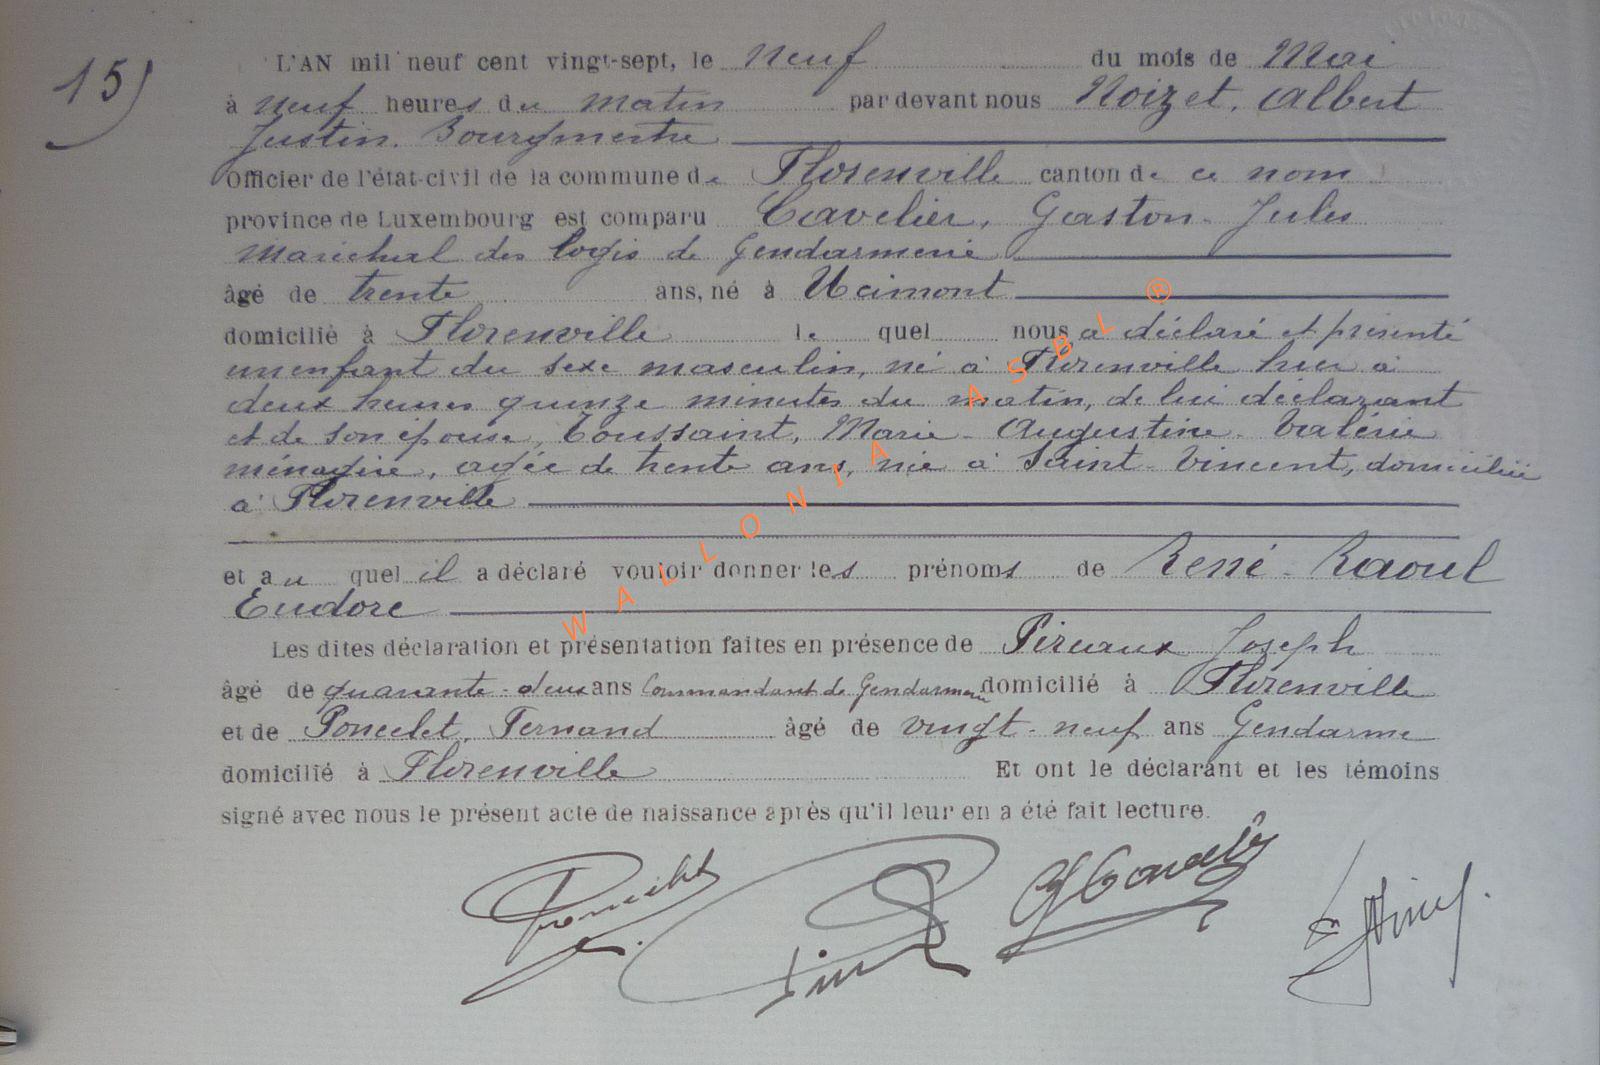 15)
L'AN mil neuf cent vingt-sept, le neuf du mois de Mai
à neuf heures du matin par devant nous Noizet, Albert
Justin, Bourgmestre
Officier de l'état-civil de la commune de Florenville canton de ce nom
province de Luxembourg est comparu Cavelier, Gaston-Jules
Maréchal des logis de Gendarmerie
âgé de trente ans, né à Ucimont
domicilié à Florenville le quel nous a déclaré et présenté
un enfant du sexe masculin, né à Florenville hier à
deux heures quinze minutes du matin, de lui déclarant
et de son épouse, Toussaint, Marie-Augustine-Valérie
ménagère, agée de trente ans, née à Saint-Vincent, domiciliée
à Florenville
et au quel il a déclaré vouloir donner les prénoms de René-Raoul
Eudore
Les dites déclaration et présentation faites en présence de Pireaux Joseph
âgé de quarante-deux ans Commandant de Gendarmerie domicilié à Florenville
et de Poncelet, Fernand âgé de vingt-neuf ans Gendarme
domicilié à Florenville Et ont le déclarant et les témoins
signé avec nous le présent acte de naissance après qu'il leur en a été fait lecture.
WALLONIA ASBL ®